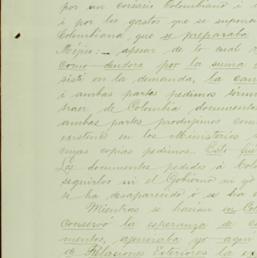 por un corsario Colombiano i
i por los gastos que se supone
Colombiana que se preparaba
Méjico: apesar de lo cual
como deudora por la suma
sistí en la demanda, la can
i ambas partes pedimos
traer de Colombia documento
ambas partes produjimos com
existentes en los Ministerios
cuyas copias pedimos. Esto
Los documentos pedidos á Colo
seguirlos ni el Gobierno ni yo
se ha desaparecido ó se ha
Mientras se hacian en Col
conservó la esperanza de co
mentos, apuraba yo aquí
de Relaciones Exteriores la ex